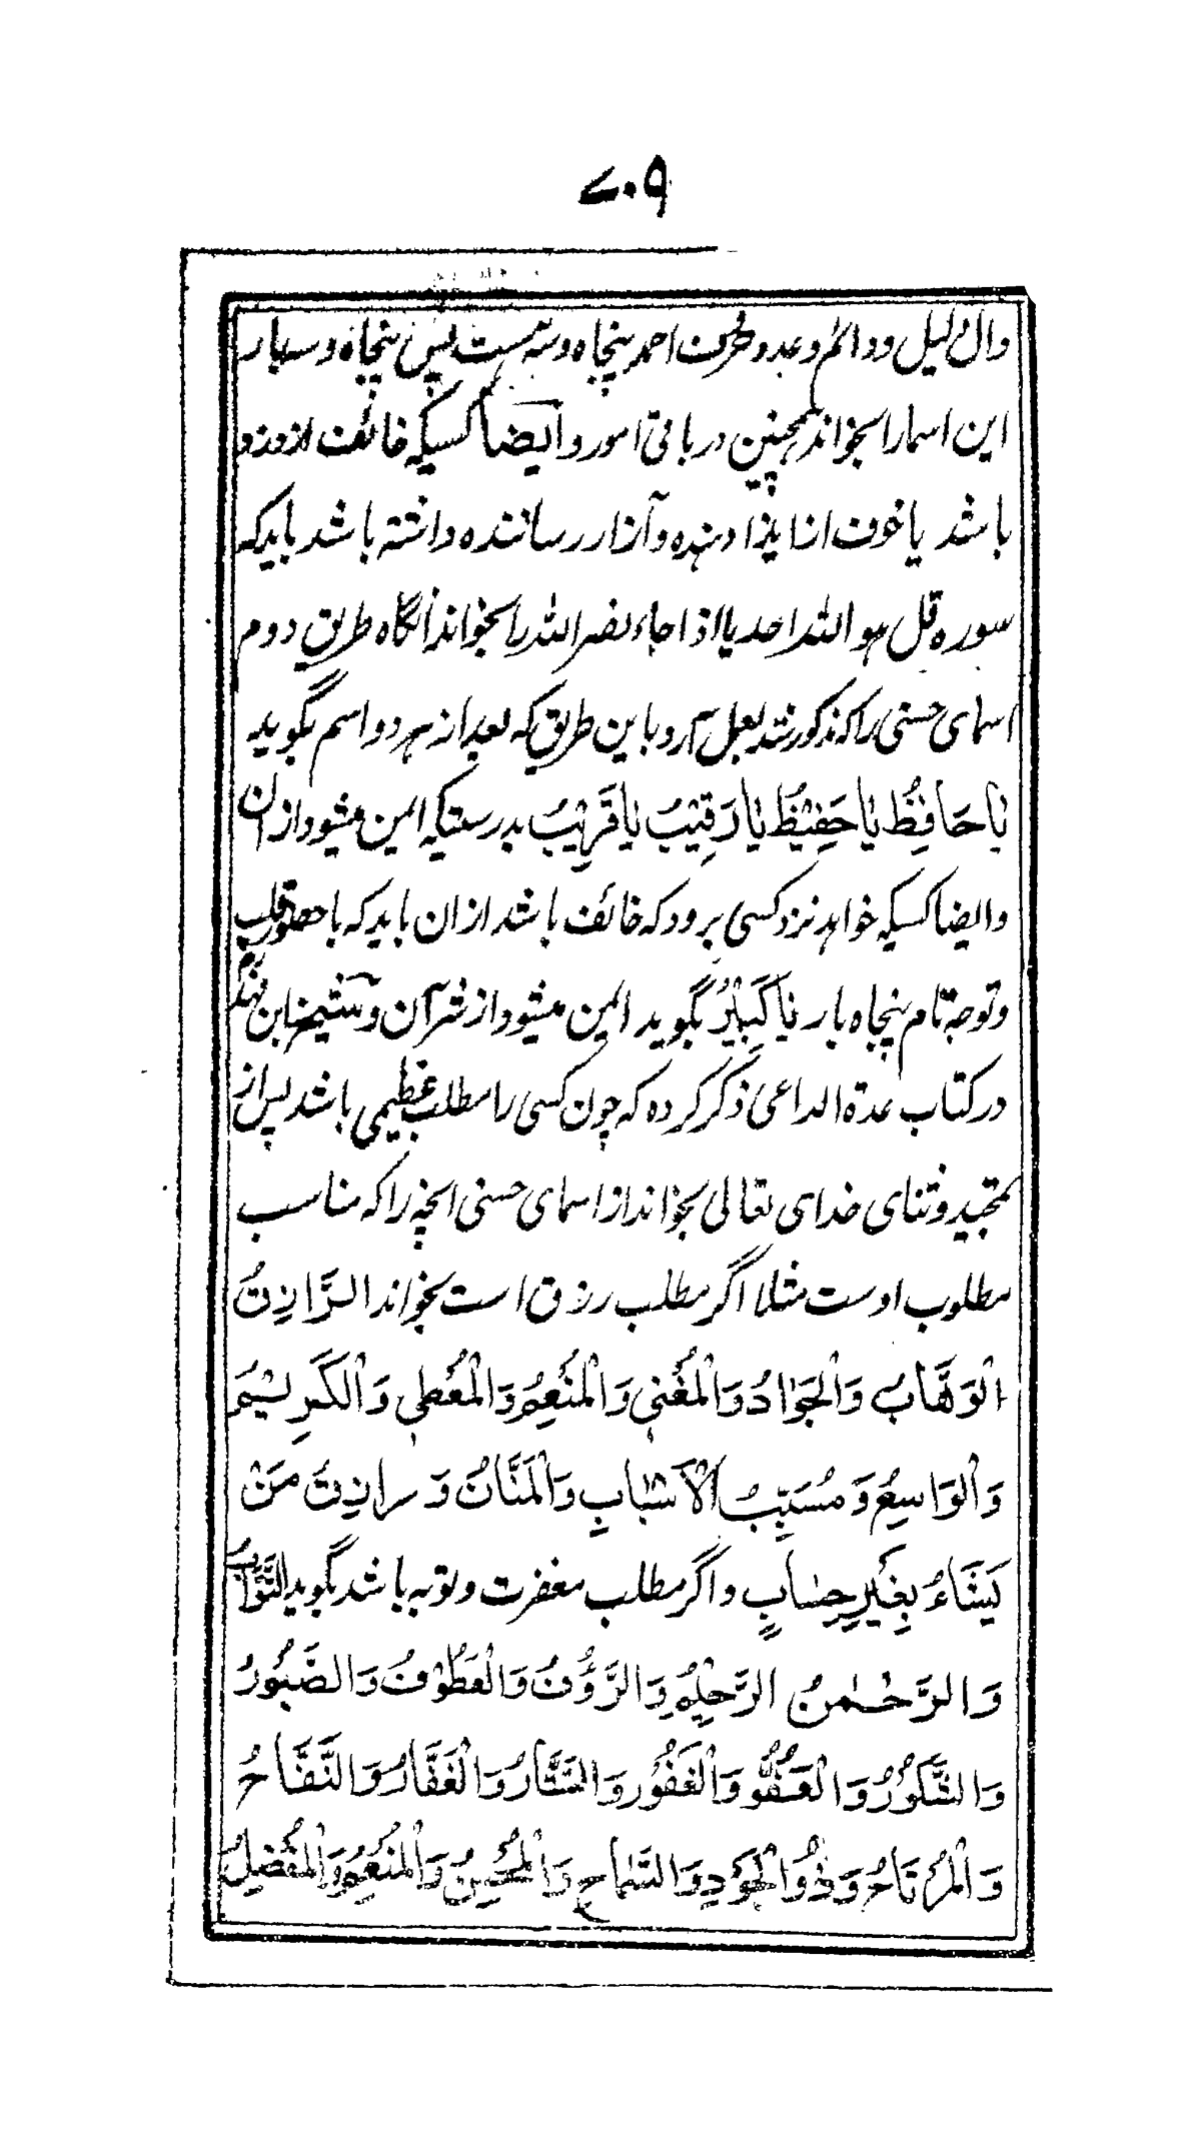 ۷۰۹
دال دلیل و دائم وعدد حرف احمد پنجاه و سه است پس پنجاه و سه بار
این اسما را بخواند همچنین در باقی امور و ایضا کسیکه خائف از دزد
باشد یا خوف از ایذا دهنده و آزار رساننده داشته باشد بایدکه
سوره قل هو الله احد یا اذا جاء نصر الله را بخواند آنگاه طریق دوم
اسمای حسنی را که مذکور شد بعمل آرد باین طریق که بعد از هر دو اسم بگوید
یَا حَافِظُ یَا حَفِیْظُ یَا رَقِیْبُ یَا قَرِیْبُ بدرستیکه ایمن میشود از ان
و ایضا کسیکه خواهد نزد کسی برود که خائف باشد از ان باید که با حضور قلب
و توجه تام پنجاه بار یَا کَبِیْرُ بگوید ایمن میشود از شر آن و شیخ ابن فهد
در کتاب عدة الداعی ذکر کرده که چون کسی را مطلب عظیمی باشد پس از
تمجید و ثنای خدای تعالی بخواند از اسمای حسنی انچه را که مناسب
مطلوب اوست مثلا اگر مطلب رزق است بخواند الرَّازِقُ
الْوَهَّابُ وَالْجَوَادُ وَالْمُغْنِی وَالْمُنْعِمُ وَالْمُعْطِی وَالْکَرِیْمُ
وَالْوَاسِعُ وَ مُسَبِّبُ الْاَسْبَابِ وَالْمَنَّانُ وَ رَازِقُ مَنْ
یَشَاءُ بِغَیْرِ حِسَابٍ و اگر مطلب مغفرت و توبه باشد بگوید التَّوَّابُ
وَالرَّحْمٰنُ الرَّحِیْمُ وَالرَّؤُفُ وَالْعَطُوْفُ وَالصَّبُوْرُ
وَالشَّکُوْرُ وَالْعَفُوُّ وَالْغَفُوْرُ وَالسَّتَّارُ وَالْغَفَّارُ وَالنَّفَّاحُ
وَالْمُرْتَاحُ وَ ذُوالْجُوْدِ وَالسَّمَاحِ وَالْمُحْسِنُ وَالْمُنْعِمُ وَالْمُفْضِلُ